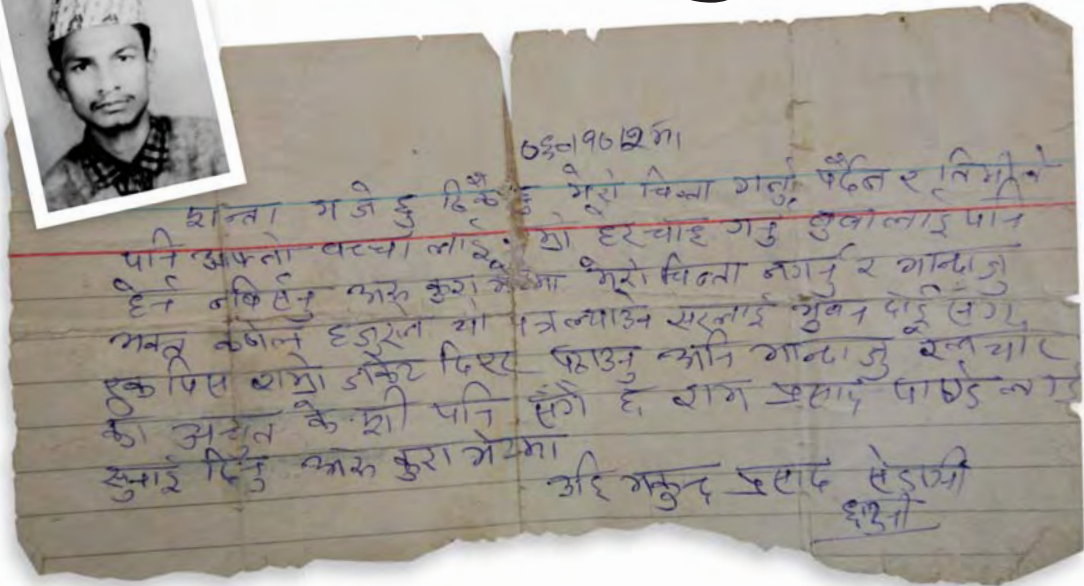 ०६०।१०।२ मा
शान्ता म जे छु ठिकै छु मेरो चिन्ता गर्नु पर्दैन र तिमीले
पनि आफ्नो बच्चा लाई हरचाह गर्नु बुवालाई पनि
हेर्न नबिर्सनु अरु कुरा भेटमा मेरो चिन्ता नगर्नु र मान्दाजु
भक्त कंडेल हजुरले यो पत्र ल्याउने सरलाई भुवन दाई संग
एक पिस राम्रो डकेट दिएर पठाउनु अनि मान्दाजु
का अचुत के.सी पनि संगै छ राम प्रसाद पाण्डे लाई
सुनाई दिनु अरु कुरा भेटमा
उहि मकुन्द प्रसाद सेडाई